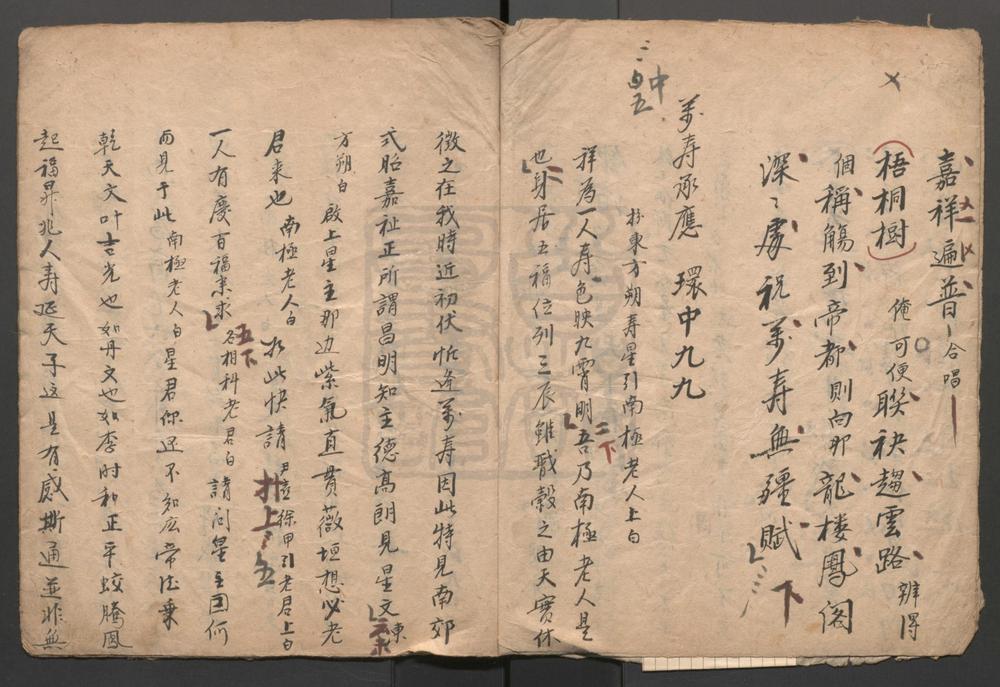 嘉祥遍普 合唱
梧桐樹 俺可便聯袂趨雲路 辦得
個稱觴到帝都則向那龍楼鳳阁
深〻處祝萬寿無疆賦 下
中
萬寿承應 環中九九
扮東方朔寿星引南極老人上白
祥為一人寿色映九霄明吾乃南極老人是
二下
也身居五福位列三辰雖戩穀之由天實休
徴之在我時近初伏恰逢萬寿因此特見南郊
式昭嘉祉正所謂昌明知主德高朗見星文 東
方朔白 啟上星主那边紫氣直貫薇垣想必老
君来也 南極老人白 如此快請 徐甲引老君上白
上
一人有慶百福来求 各相科老君白 請问星主因何
五下
而見于此 南極老人白 星君你还不知広帝德乗
乾天文叶吉光也如丹文也如李时和正平蛟腾凤
起福昇兆人寿延天子这是有感斯通並非無